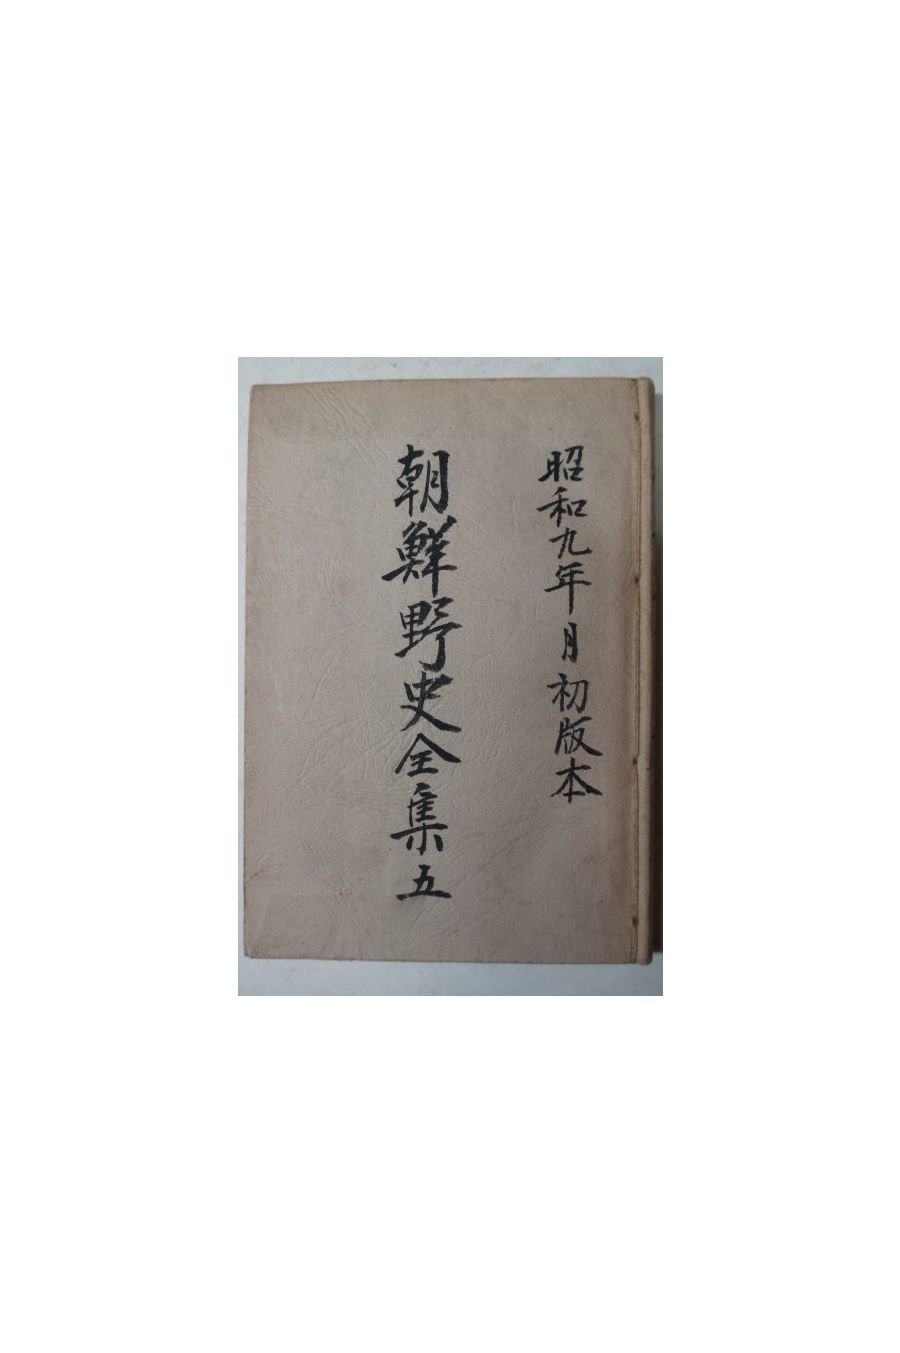 昭和九年 月 初版本
朝鮮野史全集 五